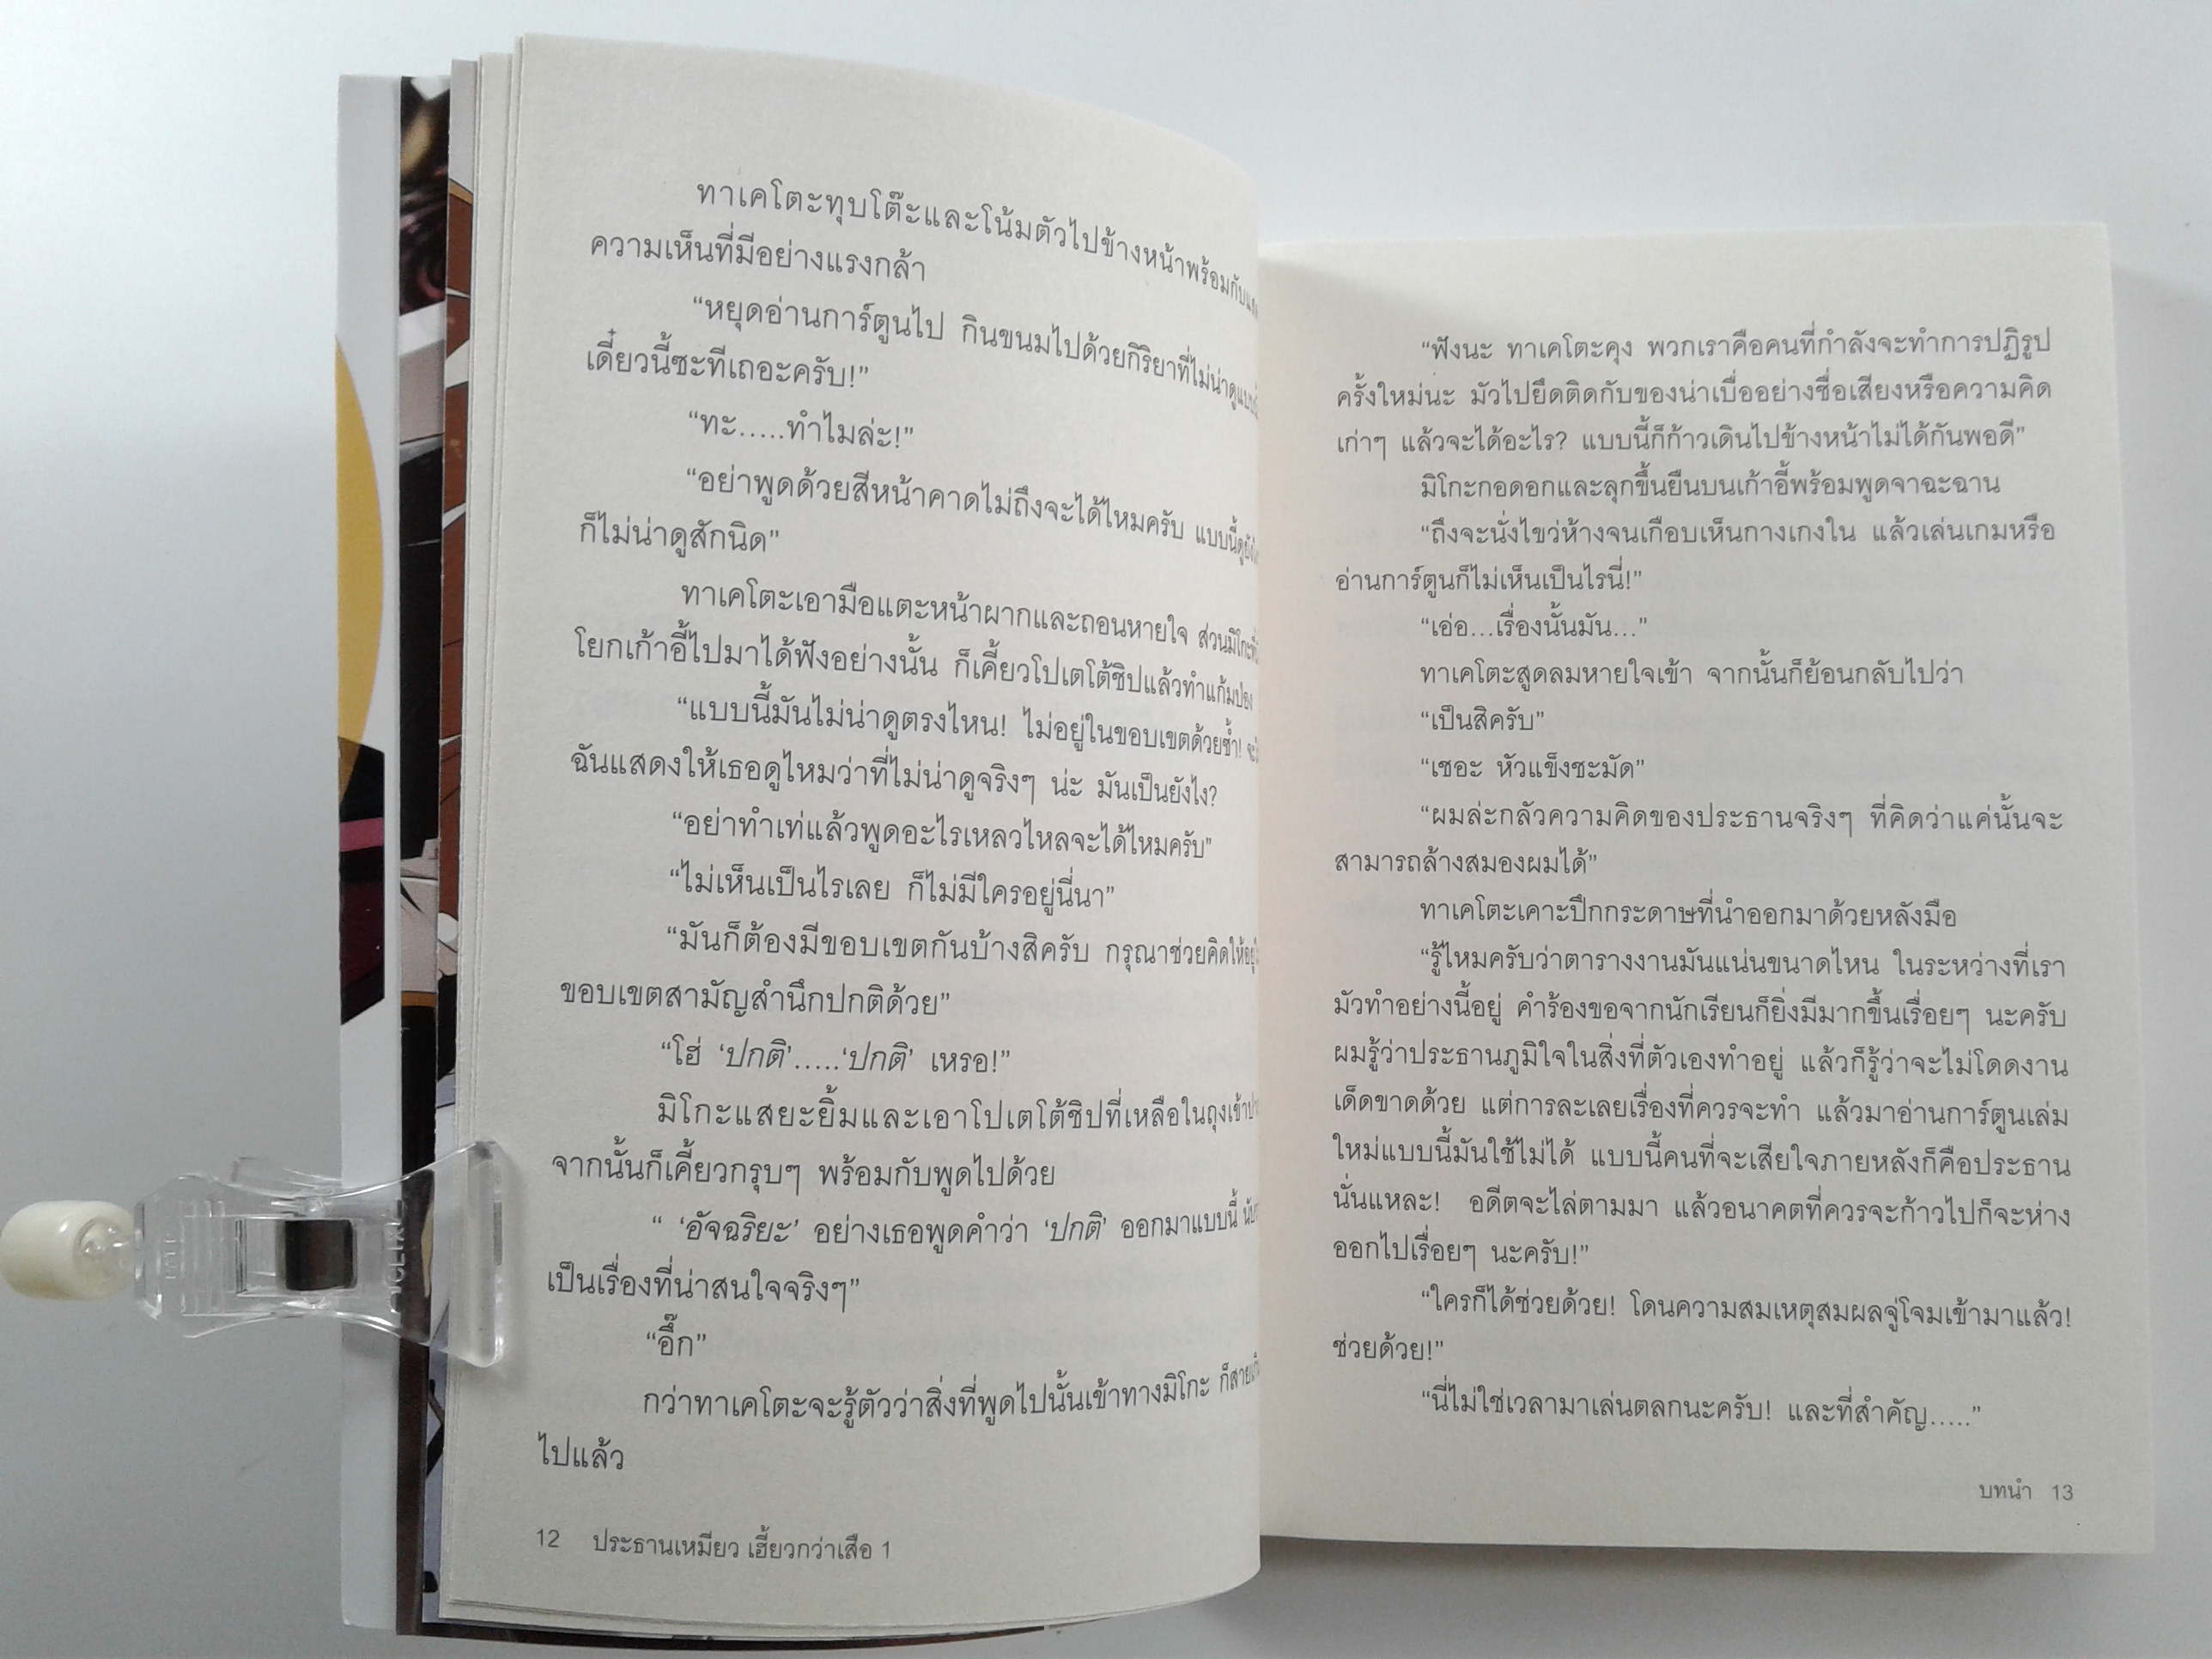 ทาเคโตะทุบโต๊ะและโน้มตัวไปข้างหน้าพร้อมกับ
ความเห็นที่มีอย่างแรงกล้า
“หยุดอ่านการ์ตูนไป กินขนมไปด้วยกิริยาที่ไม่น่าดูแบบ
เดี๋ยวนี้ซะทีเถอะครับ!”
“ทะ.....ทำไมล่ะ!”
“อย่าพูดด้วยสีหน้าคาดไม่ถึงจะได้ไหมครับ แบบนี้ดู
ก็ไม่น่าดูสักนิด”
ทาเคโตะเอามือแตะหน้าผากและถอนหายใจ ส่วนมิโกะ
โยกเก้าอี้ไปมาได้ฟังอย่างนั้น ก็เคี้ยวโปเตโต้ชิปแล้วทำแก้มป่อง
“แบบนี้มันไม่น่าดูตรงไหน! ไม่อยู่ในขอบเขตด้วยซ้ำ!
ฉันแสดงให้เธอดูไหมว่าที่ไม่น่าดูจริงๆ น่ะ มันเป็นยังไง?
“อย่าทำเท่แล้วพูดอะไรเหลวไหลจะได้ไหมครับ”
“ไม่เห็นเป็นไรเลย ก็ไม่มีใครอยู่นี่นา”
“มันก็ต้องมีขอบเขตกันบ้างสิครับ กรุณาช่วยคิดให้
ขอบเขตสามัญสำนึกปกติด้วย”
“โฮ่ ‘ปกติ’.....‘ปกติ’ เหรอ!”
มิโกะแสยะยิ้มและเอาโปเตโต้ชิปที่เหลือในถุงเข้า
จากนั้นก็เคี้ยวกรุบๆ พร้อมกับพูดไปด้วย
“ ‘อัจฉริยะ’ อย่างเธอพูดคำว่า ‘ปกติ’ ออกมาแบบนี้
เป็นเรื่องที่น่าสนใจจริงๆ”
“อึ๊ก”
กว่าทาเคโตะจะรู้ตัวว่าสิ่งที่พูดไปนั้นเข้าทางมิโกะ
ไปแล้ว
12 ประธานเหมียว เฮี้ยวกว่าเสือ 1
“ฟังนะ ทาเคโตะคุง พวกเราคือคนที่กำลังจะทำการปฏิรูป
ครั้งใหม่นะ มัวไปยึดติดกับของน่าเบื่ออย่างชื่อเสียงหรือความคิด
เก่าๆ แล้วจะได้อะไร? แบบนี้ก็ก้าวเดินไปข้างหน้าไม่ได้กันพอดี”
มิโกะกอดอกและลุกขึ้นยืนบนเก้าอี้พร้อมพูดจาฉะฉาน
“ถึงจะนั่งไขว่ห้างจนเกือบเห็นกางเกงใน แล้วเล่นเกมหรือ
อ่านการ์ตูนก็ไม่เห็นเป็นไรนี่!”
“เอ่อ...เรื่องนั้นมัน...”
ทาเคโตะสูดลมหายใจเข้า จากนั้นก็ย้อนกลับไปว่า
“เป็นสิครับ”
“เชอะ หัวแข็งชะมัด”
“ผมล่ะกลัวความคิดของประธานจริงๆ ที่คิดว่าแค่นั้นจะ
สามารถล้างสมองผมได้”
ทาเคโตะเคาะปึกกระดาษที่นำออกมาด้วยหลังมือ
“รู้ไหมครับว่าตารางงานมันแน่นขนาดไหน ในระหว่างที่เรา
มัวทำอย่างนี้อยู่ คำร้องขอจากนักเรียนก็ยิ่งมีมากขึ้นเรื่อยๆ นะครับ
ผมรู้ว่าประธานภูมิใจในสิ่งที่ตัวเองทำอยู่ แล้วก็รู้ว่าจะไม่โดดงาน
เด็ดขาดด้วย แต่การละเลยเรื่องที่ควรจะทำ แล้วมาอ่านการ์ตูนเล่ม
ใหม่แบบนี้มันใช้ไม่ได้ แบบนี้คนที่จะเสียใจภายหลังก็คือประธาน
นั่นแหละ! อดีตจะไล่ตามมา แล้วอนาคตที่ควรจะก้าวไปก็จะห่าง
ออกไปเรื่อยๆ นะครับ!”
“ใครก็ได้ช่วยด้วย! โดนความสมเหตุสมผลจู่โจมเข้ามาแล้ว!
ช่วยด้วย!”
“นี่ไม่ใช่เวลามาเล่นตลกนะครับ! และที่สำคัญ.....”
บทนำ 13